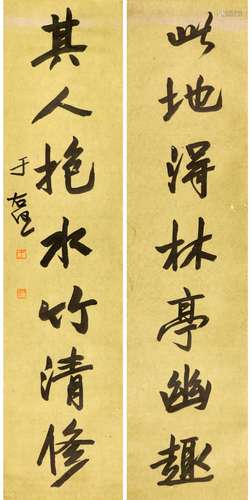 此地得林亭幽趣
其人抱水竹清修
于右任